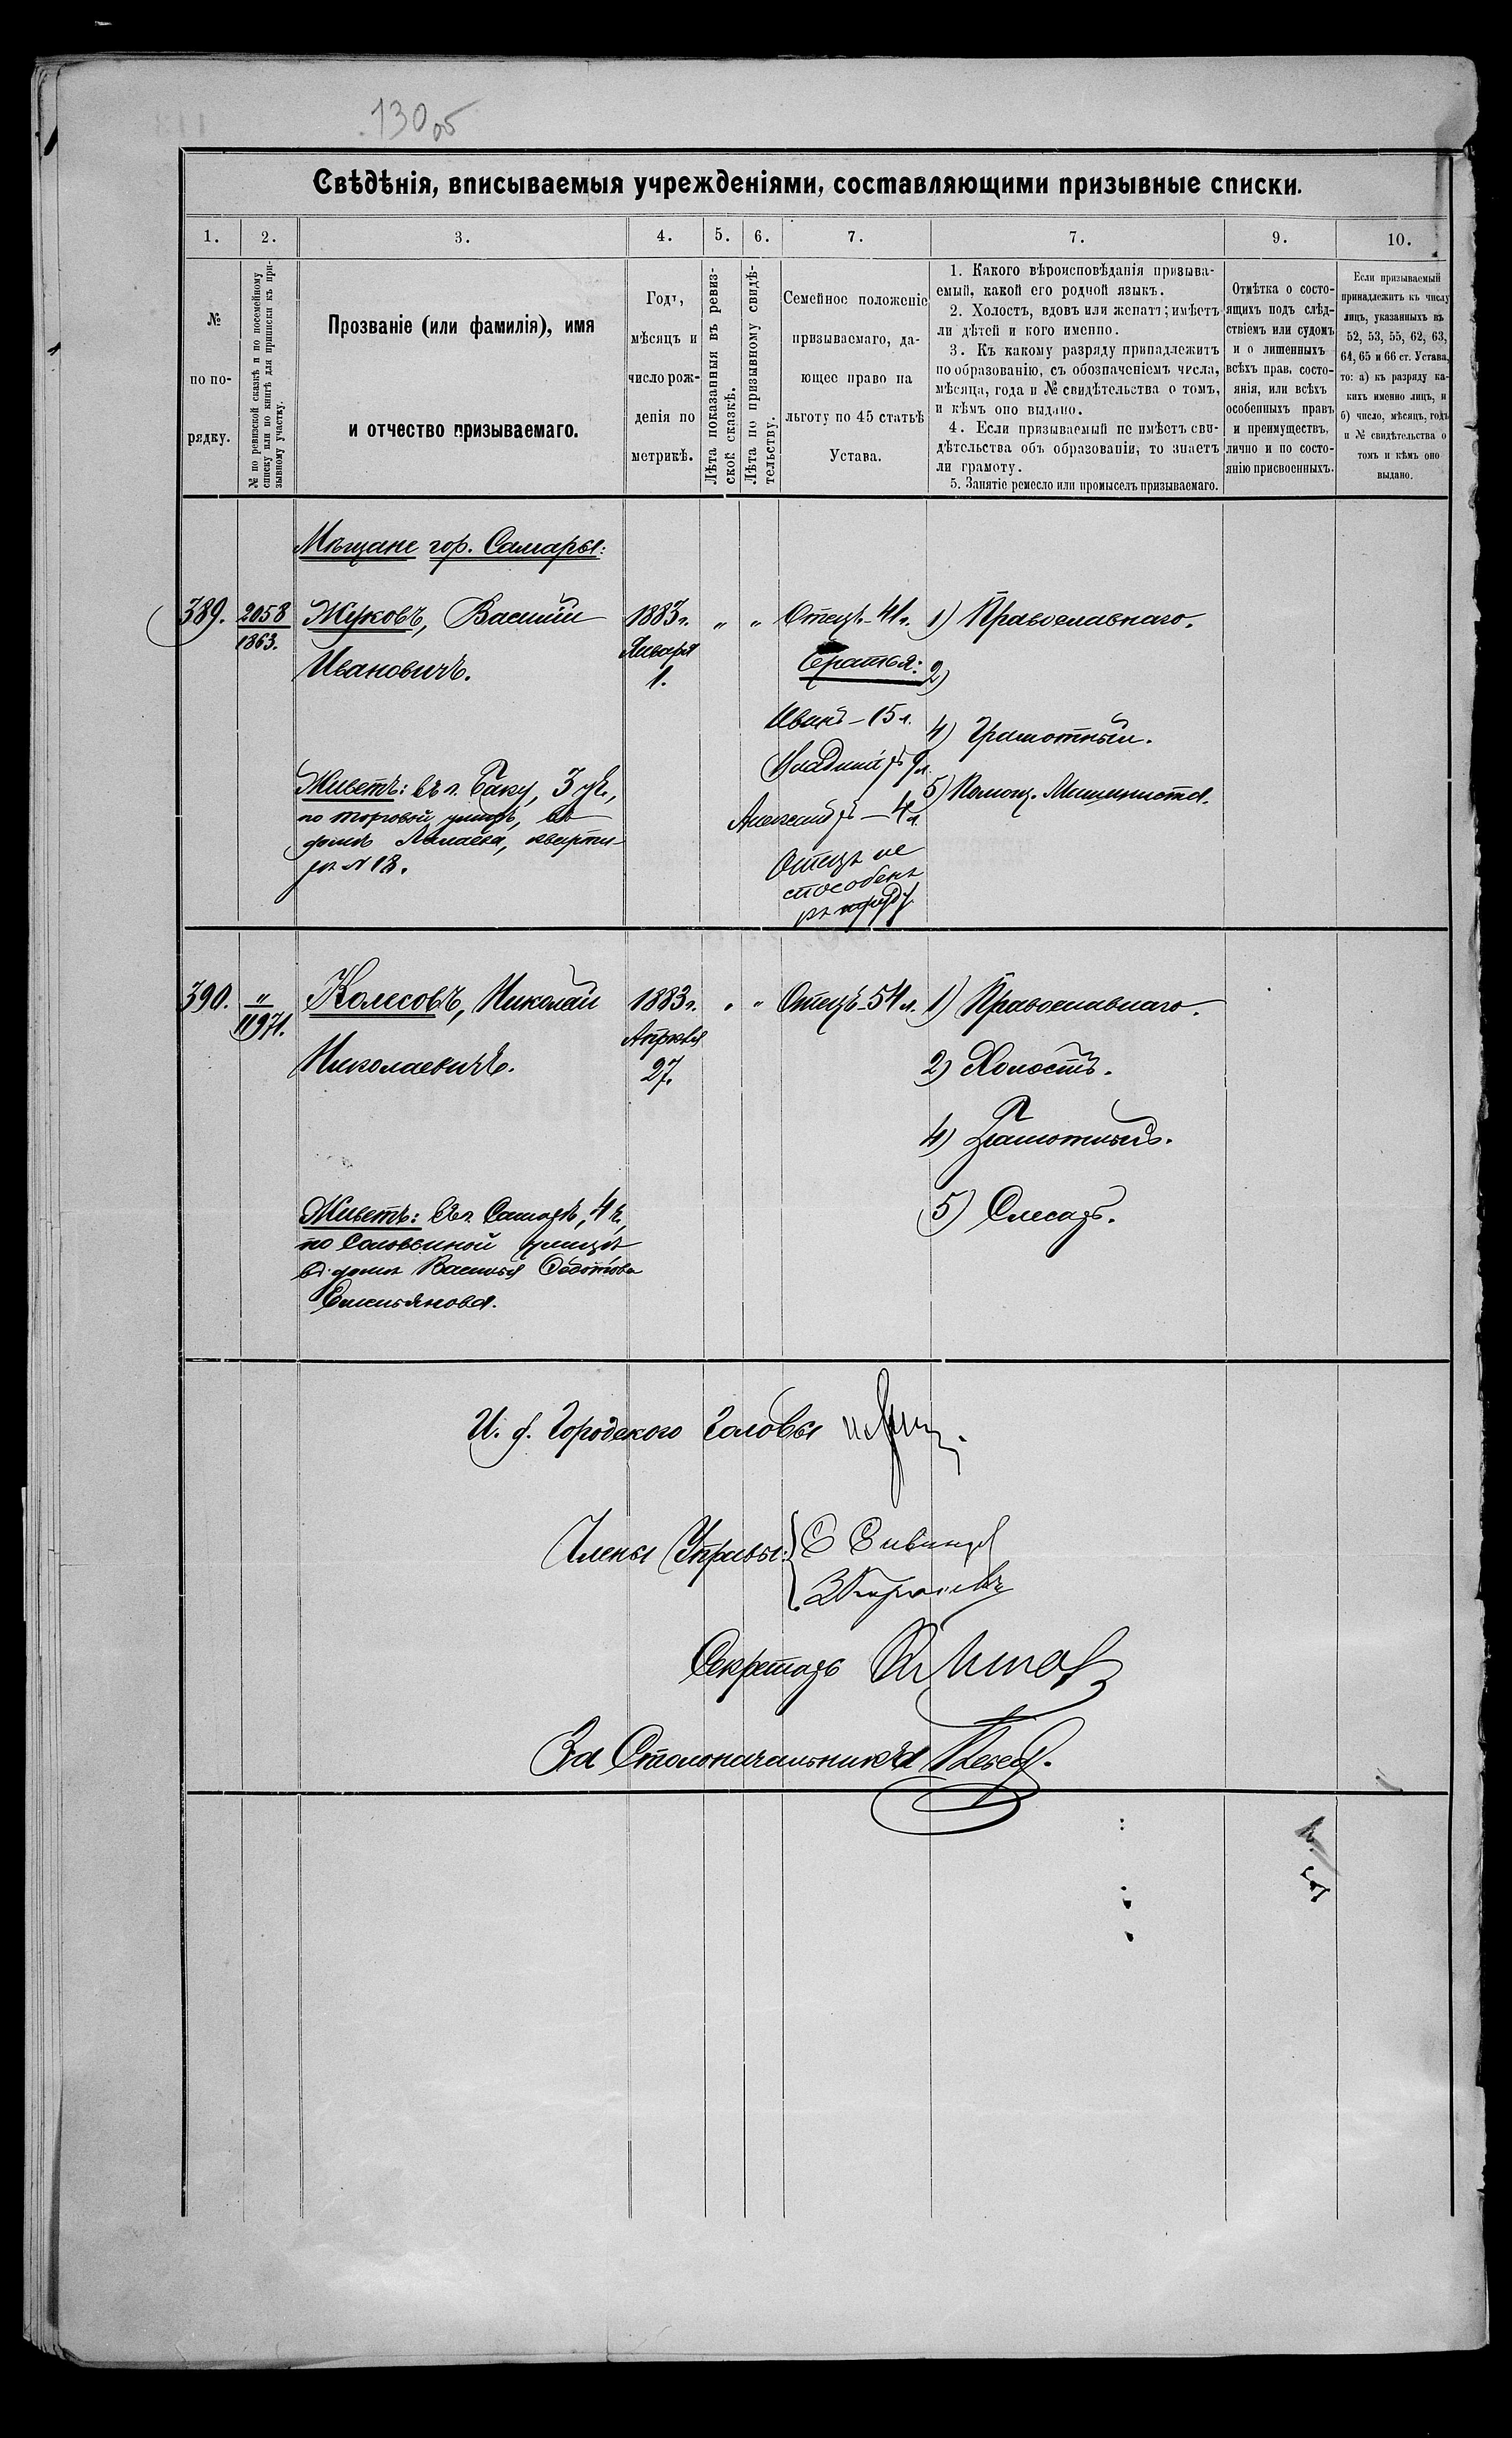 130 об
Свѣдѣнія, вписываемыя учрежденіями, составляющими призывные списки.
1. 2. 3. 4. 5. 6. 7. 7. 9. 10.
№
по по-
рядку.
№ по ревизской сказкѣ и по посемейному
списку или по книгѣ для приписки къ при-
зывному участку.
Прозваніе (или фамилія), имя
и отчество призываемаго.
Годъ,
мѣсяцъ и
число рож-
денія по
метрикѣ.
Лѣта показанныя въ ревиз-
ской сказкѣ.
Лѣта по призывному свидѣ-
тельству.
Семейное положеніе
призываемаго, да-
ющее право на
льготу по 45 статьѣ
Устава.
1. Какого вѣроисповѣданія призыва-
емый, какой его родной языкъ.
2. Холостъ, вдовъ или женатъ; имѣетъ
ли дѣтей и кого именно.
3. Къ какому разряду принадлежитъ
по образованію, съ обозначеніемъ числа,
мѣсяца, года и № свидѣтельства о томъ,
и кѣмъ оно выдано.
4. Если призываемый не имѣетъ сви-
дѣтельства объ образованіи, то знаетъ
ли грамоту.
5. Занятіе ремесло или промыселъ призываемаго.
Отмѣтка о состо-
ящихъ подъ слѣд-
ствіемъ или судомъ
и о лишенныхъ
всѣхъ прав, состо-
янія, или всѣхъ
особенныхъ правъ
и преимуществъ,
лично и по состо-
янію присвоенныхъ.
Если призываемый
принадлежитъ къ числу
лицъ, указанныхъ въ
52, 53, 55, 62, 63,
64, 65 и 66 ст. Устава,
то: а) къ разряду ка-
кихъ именно лицъ, и
б) число, мѣсяцъ, годъ
и № свидѣтельства о
томъ и кѣмъ оно
выдано.
Мѣщане гор. Самары:
389. 2058 Жуковъ, Василій 1883г. „ „ Отецъ-41л. 1) Православнаго.
1863. Января Братья: 2)
Ивановичъ. 1.
Иванъ-15л. 4) Грамотный.
Владиміръ 9л.
Живетъ: въ г. Баку, 3 уч., 5) Помощ. Машиниста.
по торговой улицѣ, въ Алексѣй - 4л.
домѣ кварти-
рѣ № 18. Отецъ не
способенъ
къ труду.
390. „ Колесовъ, Николай 1883г. „ „ Отецъ-54л. 1) Православнаго.
11971. Апрѣля
Николаевичъ. 27. 2) Холостъ.
4) Грамотный.
Живетъ: въ г. Самарѣ, 4 ч., 5) Слесарь.
по Соловьиной улицѣ
въ домѣ Василья Ѳедотова
Емельянова.
И. д. Городского Головы
Члены Управы:
Секретарь
За Столоначальника